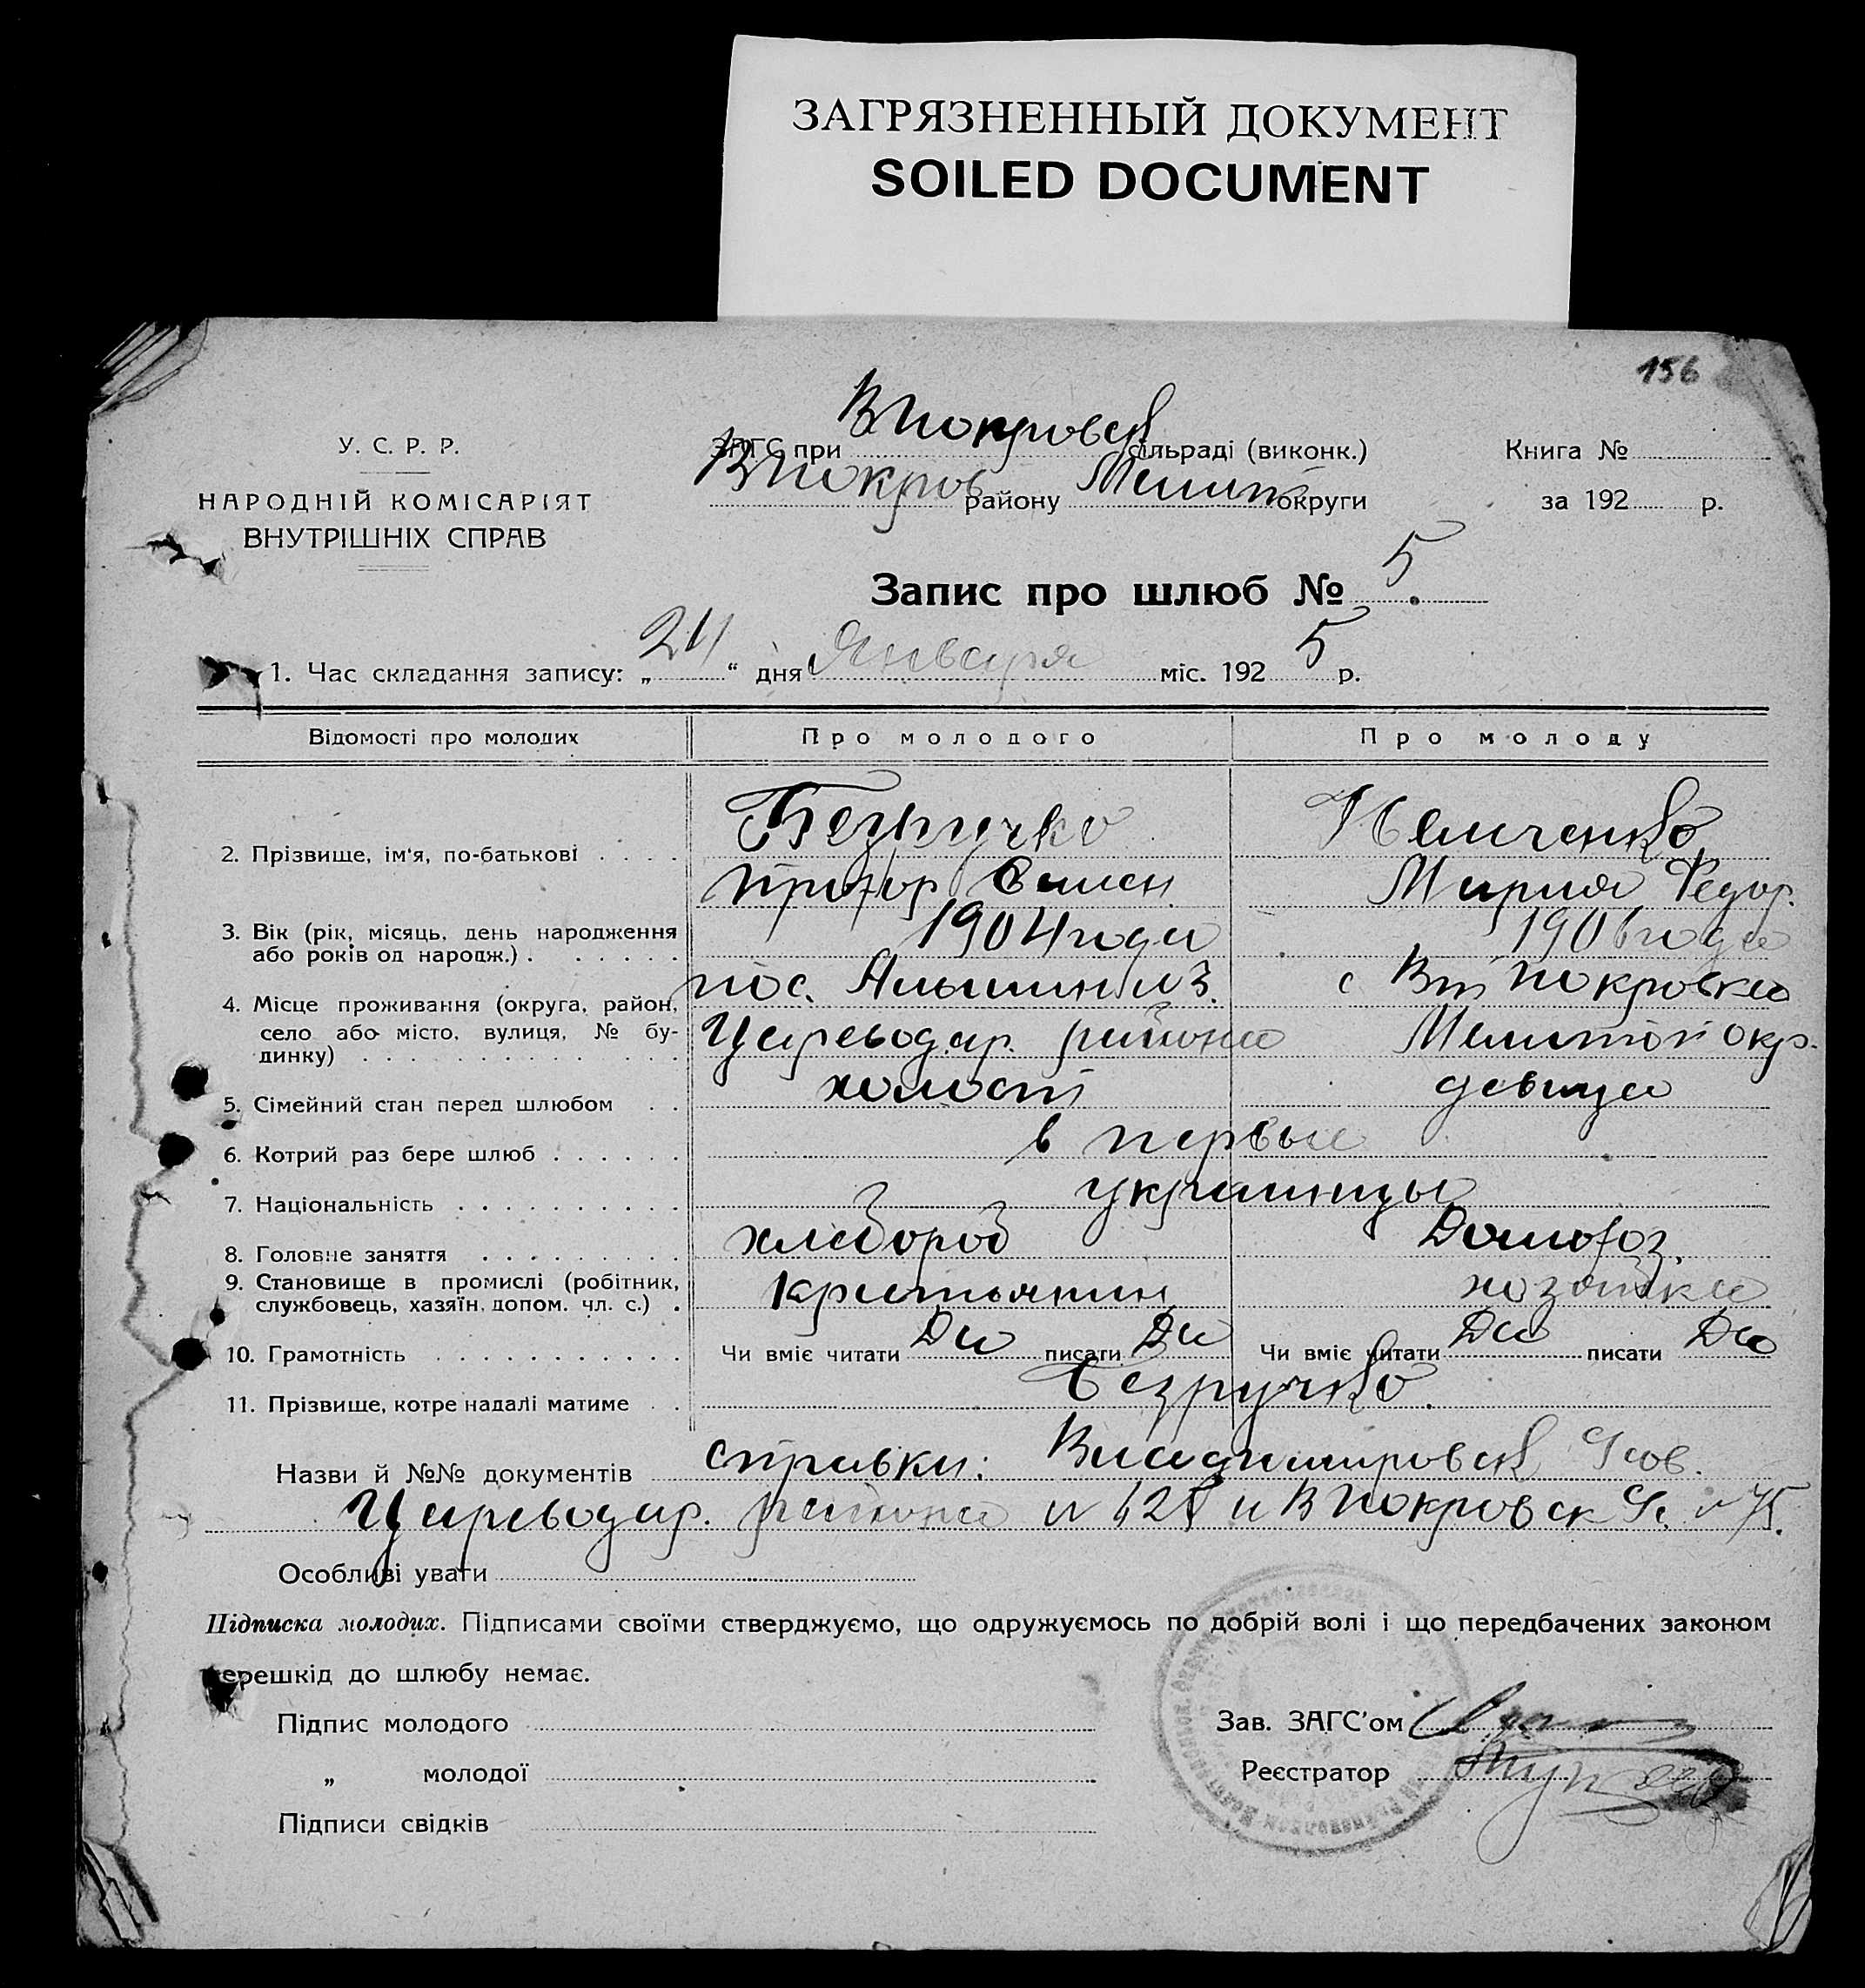 ЗАГРЯЗНЕННЫЙ ДОКУМЕНТ
SOILED DOCUMENT
156
У. С. Р. Р.
НАРОДНІЙ КОМІСАРІЯТ
ВНУТРІШНІХ СПРАВ
ЗАГС при ВПокровск сільраді (виконк.)
ВПокров району Мелит округи
Книга №
за 192 р.
Запис про шлюб № 5.
1. Час складання запису: „ 24 “ дня Января міс. 192 5 р.
Відомості про молодих Про молодого Про молоду
2. Прізвище, ім'я, по-батькові Безручко
Семен Мария Федор.
3. Вік (рік, місяць, день народження або років од народж.) 1904 года 1906 года
4. Місце проживання (округа, район, село або місто, вулиця, № будинку) пос. с Вт Покровка
Цареводар. района Мелитоп окр.
5. Сімейний стан перед шлюбом холост девица
6. Котрий раз бере шлюб в первые
7. Національність украинцы
8. Головне заняття хлебороб Домохоз.
9. Становище в промислі (робітник, службовець, хазяїн, допом. чл. с.) крестьянин хозяйка
10. Грамотність Чи вміє читати Да писати Да Чи вміє читати Да писати Да
11. Прізвище, котре надалі матиме Безручко.
Назви й №№ документів справки: Владимировск
Цареводар. района и ВПокровск № 75.
Особливі уваги
Підписка молодих. Підписами своїми стверджуємо, що одружуємось по добрій волі і що передбачених законом
перешкід до шлюбу немає.
Підпис молодого
„ молодої
Підписи свідків
Зав. ЗАГС'ом
Реєстратор